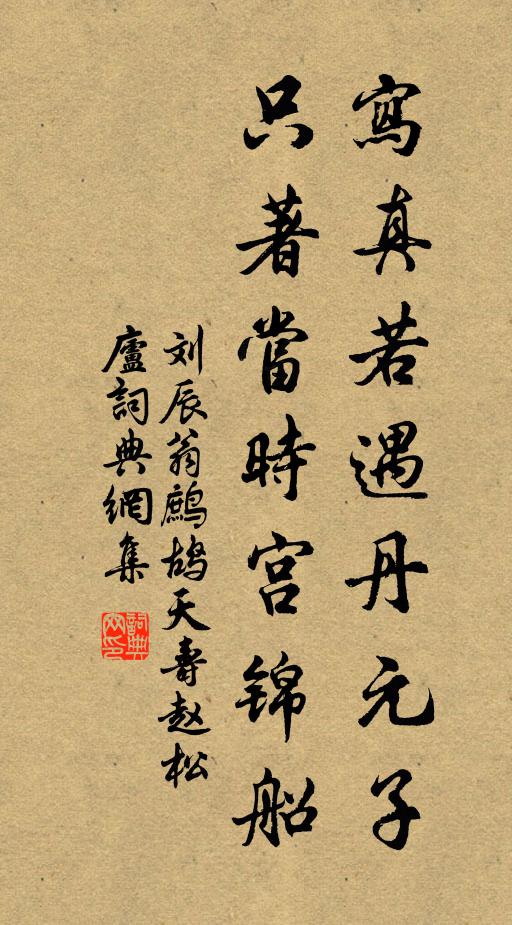 寫真若遇丹元子
只著當時宫锦船
刘辰翁鹧鸪天壽赵松
廬詞典網集
詞典
网印